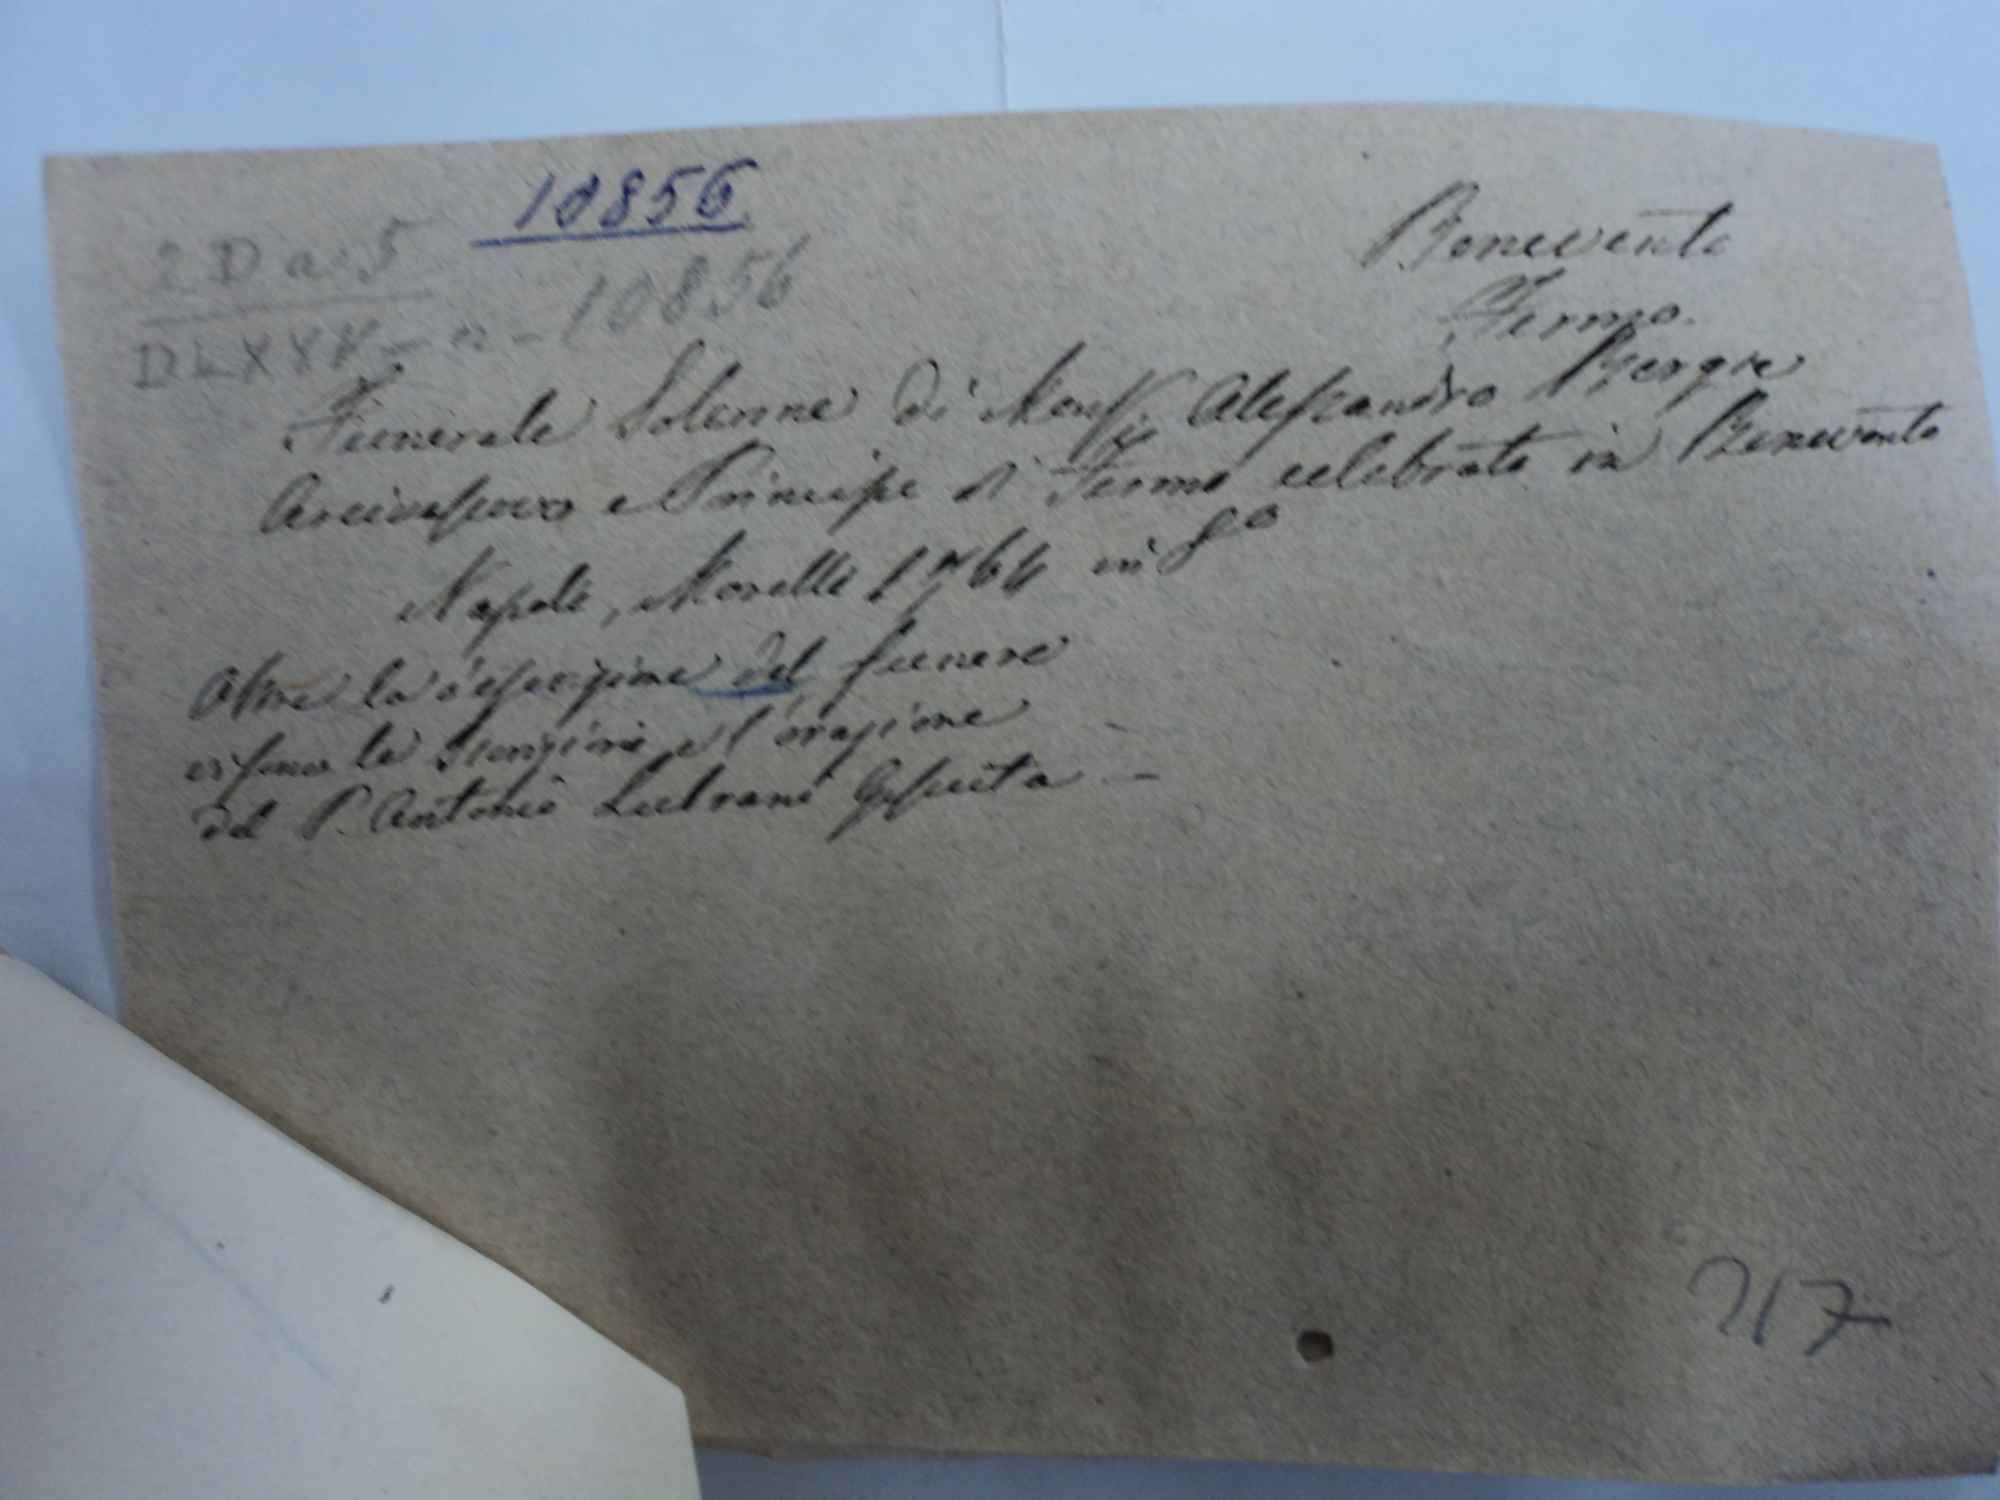 10856
2 D a. 5
DLXXX - n - 10856
Benevento
Fermo.
Funerale Solenne di Monsg. Alessandro Borgia
Arcivescovo e Principe di Fermo celebrato in Benevento
Napoli, Morelli 1764 in 8°
Oltre la descrizione del funere
vi sono le iscrizioni e l'orazione
del P. Antonio Lubrani Gesuita —
217